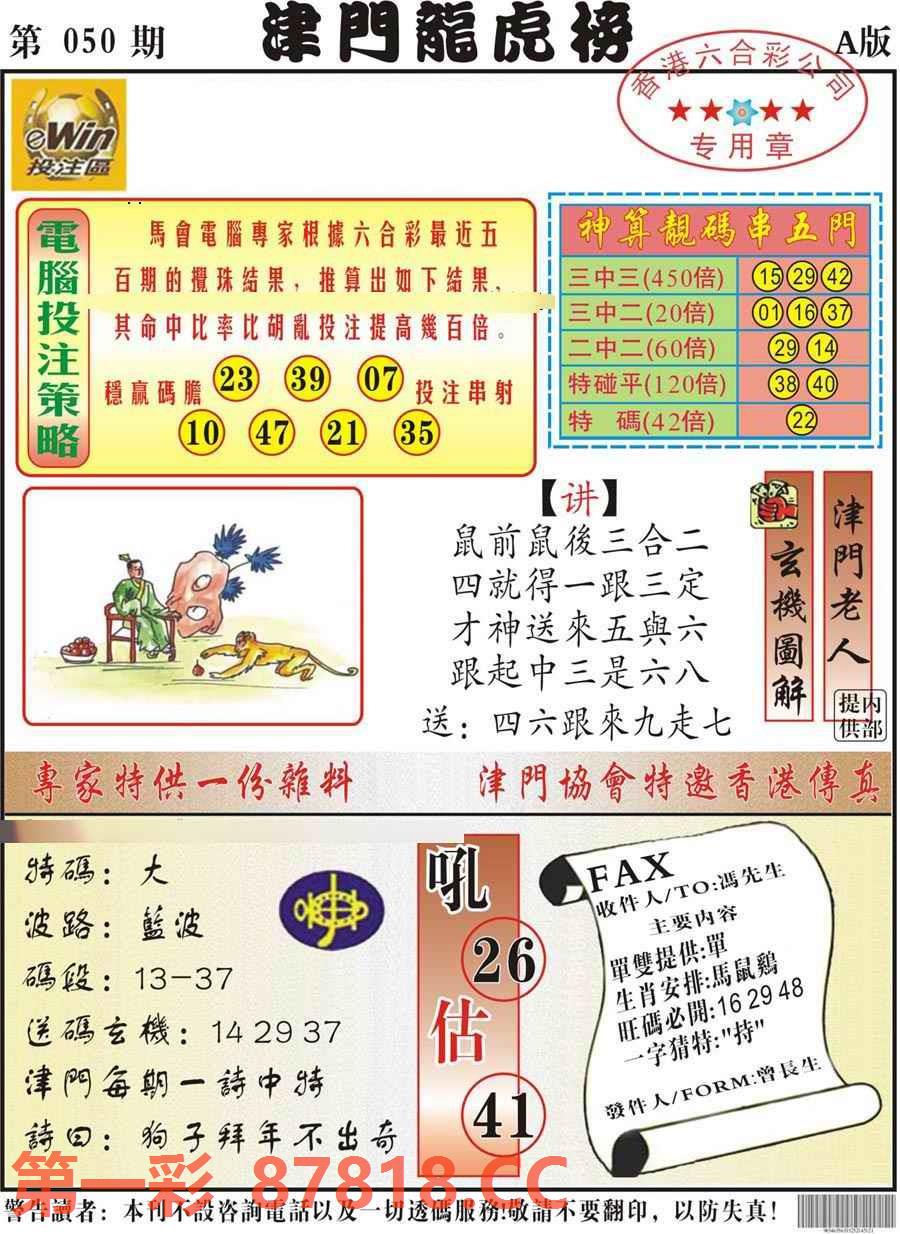 第 050 期
津門龍虎榜
A版
香港六合彩公司
专用章
eWin
投注區
電腦投注策略
馬會電腦專家根據六合彩最近五
百期的攪珠結果，推算出如下結果，
其命中比率比胡亂投注提高幾百倍。
穩贏碼膽 23 39 07 投注串射
10 47 21 35
神算靚碼串五門
三中三(450倍) 15 29 42
三中二(20倍) 01 16 37
二中二(60倍) 29 14
特碰平(120倍) 38 40
特 碼(42倍) 22
【讲】
鼠前鼠後三合二
四就得一跟三定
才神送來五與六
跟起中三是六八
送：四六跟來九走七
玄機圖解
津門老人
提供
內部
專家特供一份雜料
津門協會特邀香港傳真
特碼：大
波路：藍波
碼段：13-37
送碼玄機：14 29 37
津門每期一詩中特
詩曰：狗子拜年不出奇
吼
26
估
41
FAX
收件人/TO:馮先生
主要內容
單雙提供:單
生肖安排:馬鼠鷄
旺碼必開:16 29 48
一字猜特:"持"
發件人/FORM:曾長生
第一彩 87818.CC
警告讀者：本刊不設咨詢電話以及一切透碼服務!敬請不要翻印，以防失真！